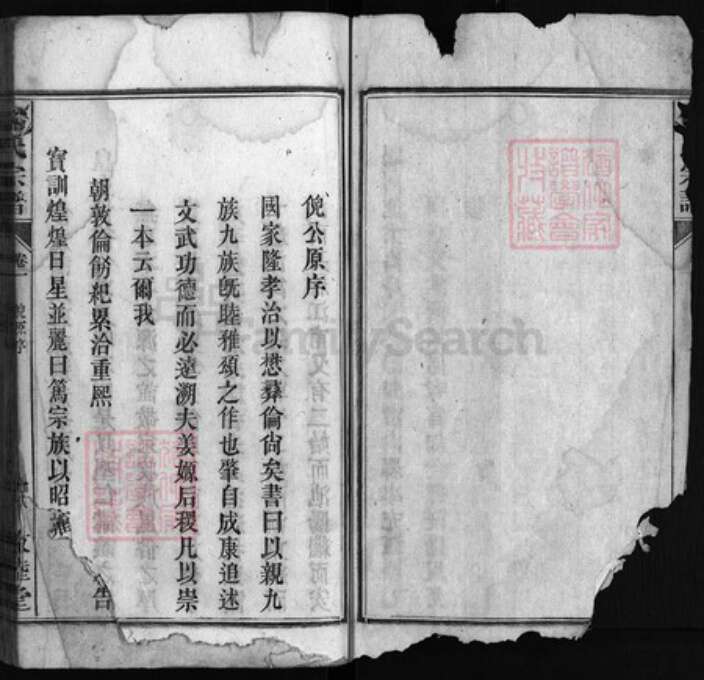 倪公原序
國家隆孝治以懋彝倫尙矣書曰以親九
族九族旣睦雅頌之作也肇自成康追述
文武功德而必遠溯夫姜嫄后稷凡以崇
一本云爾我
朝敦倫飭紀累洽重熙
告
寶訓煌煌日星並麗曰篤宗族以昭雍
氏宗譜
卷一
原序
睦堂
FamilySearch